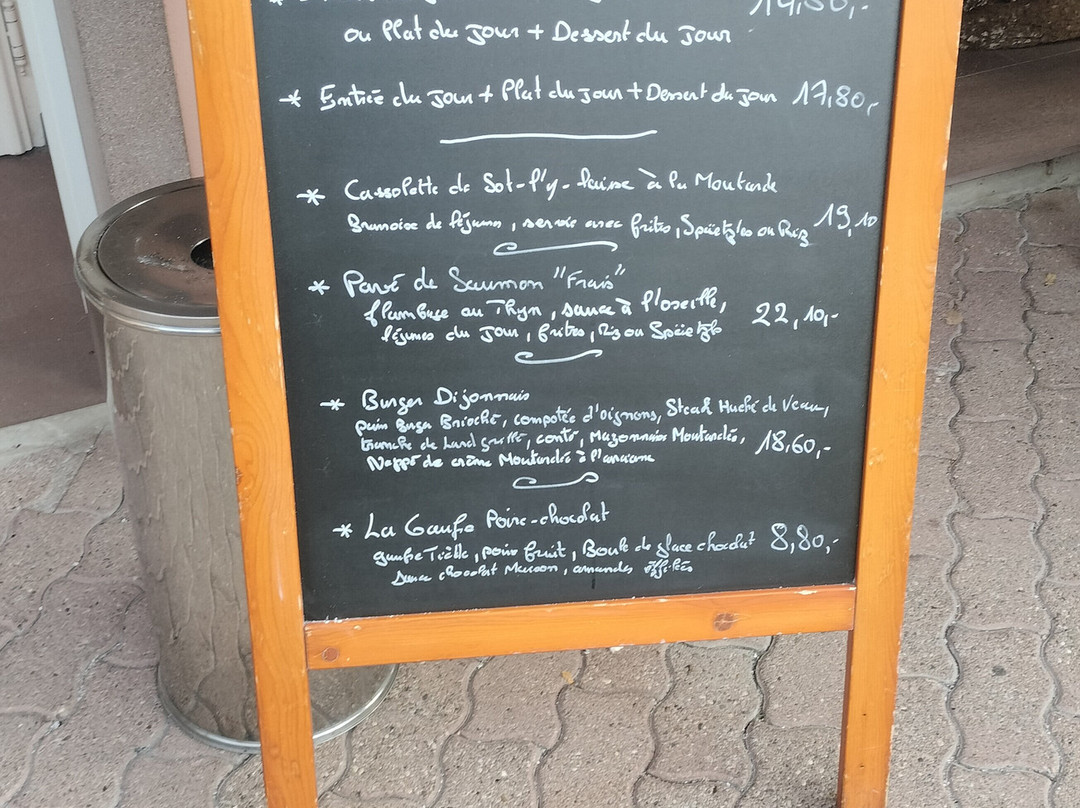 14,80,-
ou Plat du jour + Dessert du jour
* Entrée du jour + Plat du jour + Dessert du jour 17,80,-
* Cassolette de Sot-l'y-laisse à la Moutarde
Brunoise de légumes, servie avec frites, Späetzles ou Riz 19,10
* Pavé de Saumon "Frais"
flambée au Thym, sauce à l'oseille,
légumes du jour, frites, Riz ou Späetzle 22,10,-
* Burger Dijonnais
pain Burger Brioché, compotée d'oignons, Steak Haché de Veau,
tranche de Lard grillé, comté, Mayonnaise Moutardée, 18,60,-
Nappé de crème Moutardée à l'ancienne
* La Gaufre Poire-chocolat
gaufre Tiède, poire fruit, Boule de glace chocolat 8,80,-
Sauce chocolat Maison, amandes effilées